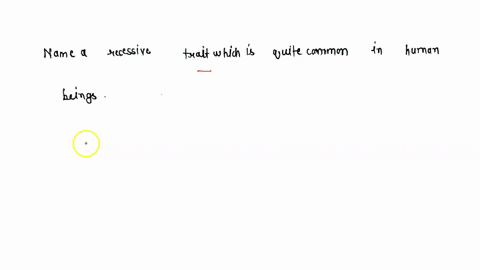 Name a recessive trait which is quite common in human
beings.